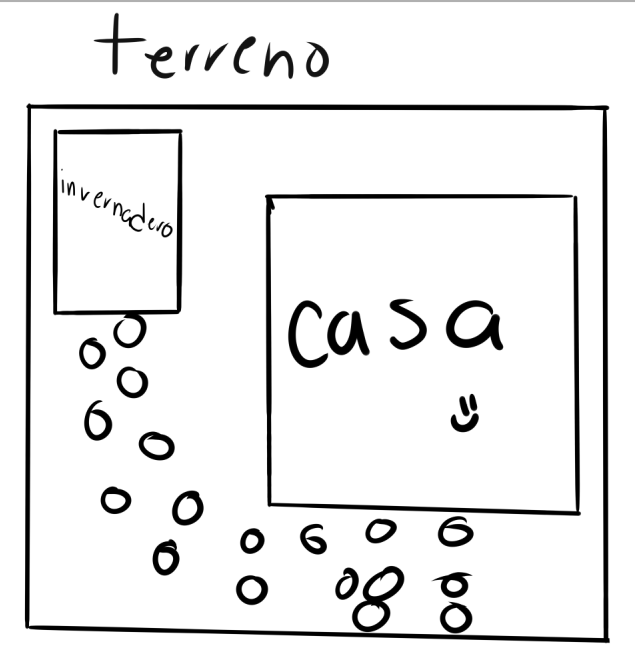 terreno
invernadero
casa